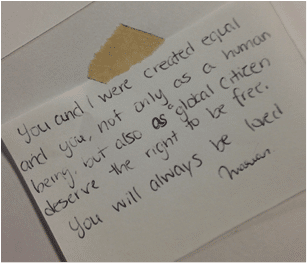 You and I were created equal
and you, not only as a human
being, but also as a global citizen
deserve the right to be free.
You will always be loved